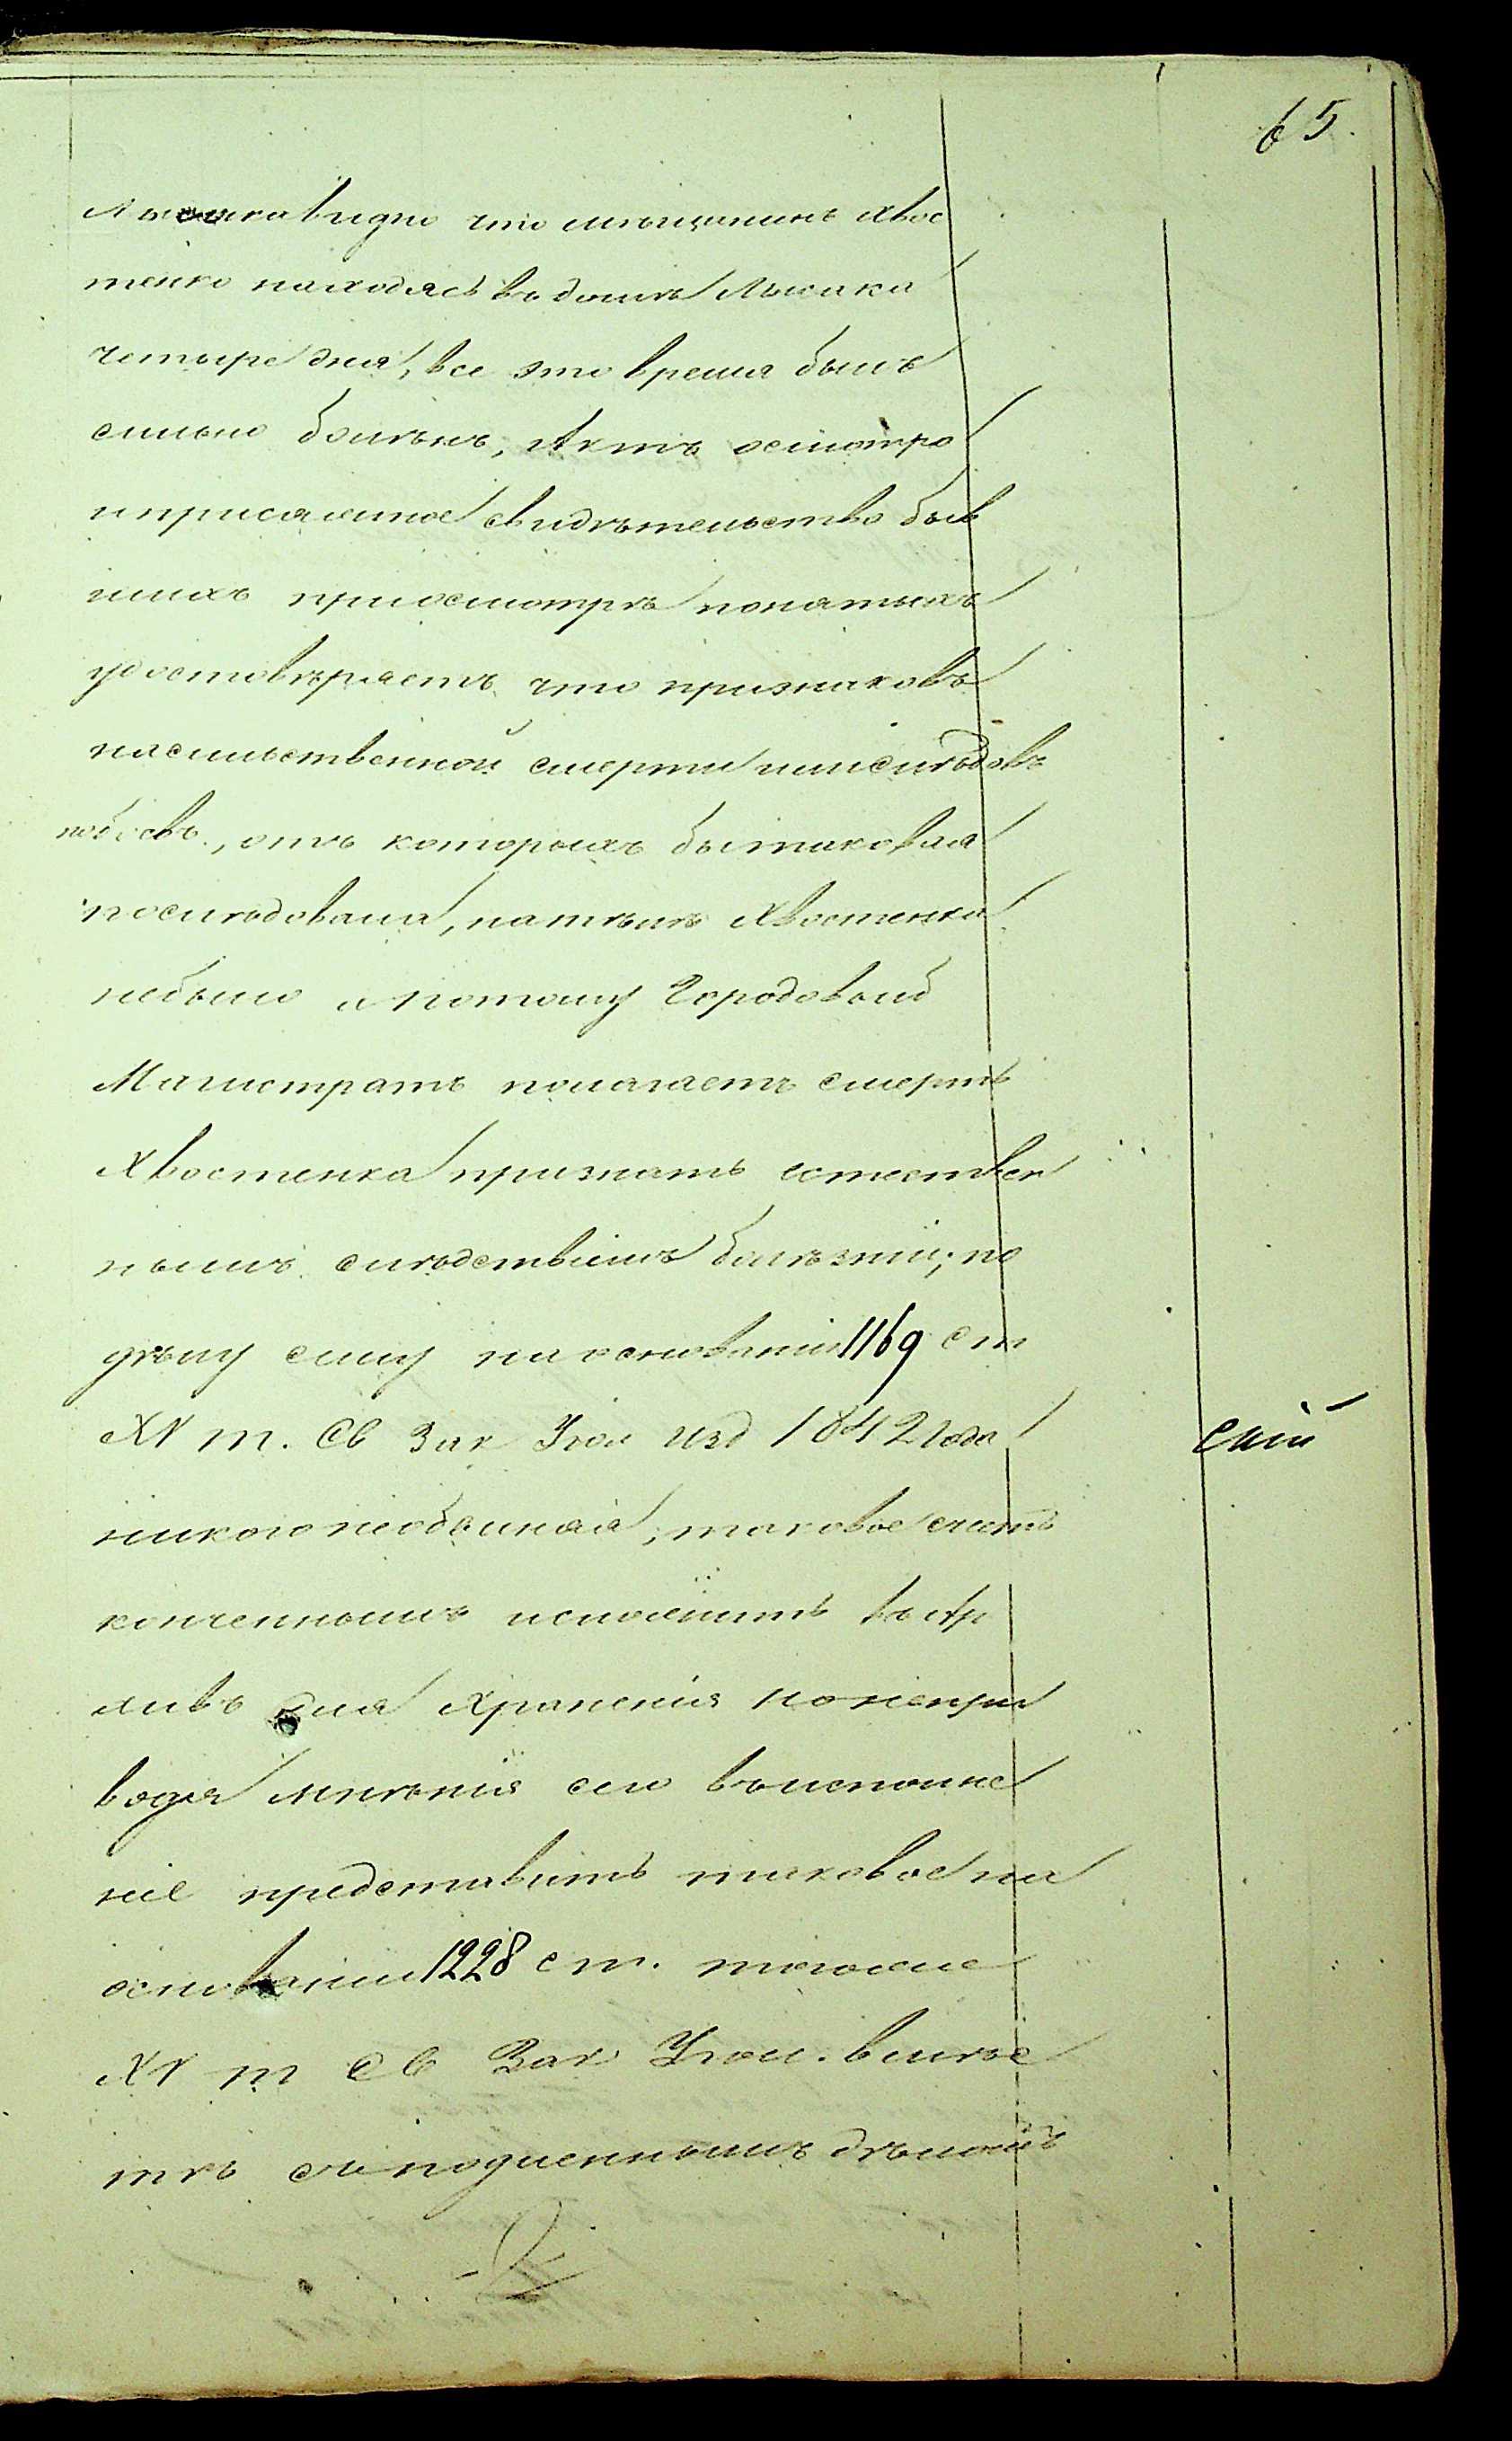 65.
Лысака видно что мещанинъ Хвос
тенко находясь въ доме Лысака
четыре дня, все это время былъ
сильно боленъ, Актъ осмотра
и присяжное свидетельство быв
шихъ приосмотрѣ понятыхъ
удостовѣряетъ что признаковъ
насильственной смерти или слѣдовъ
побоевъ, отъ которыхъ бы таковая
последовала, на тѣлѣ Хвостенка
небыло и потому Городовый
Магистратъ полагаетъ смерть
Хвостенка признать естествен
нымъ слѣдствіемъ болѣзни; по
дѣлу сему на основаніи 1169 ст
XV т. Св Зак Угол изд 1842 года
никого необвиняя, таковое счесть
конченнымъ и сдать въ Ар
хивъ для храненія но неприводя
водя мнѣнія сего въ исполне
ніе представить таковое на
основаніи 1228 ст. тогоже
XV т Св Зак Угол. вмѣс
тѣ съ подленнымъ дѣломъ